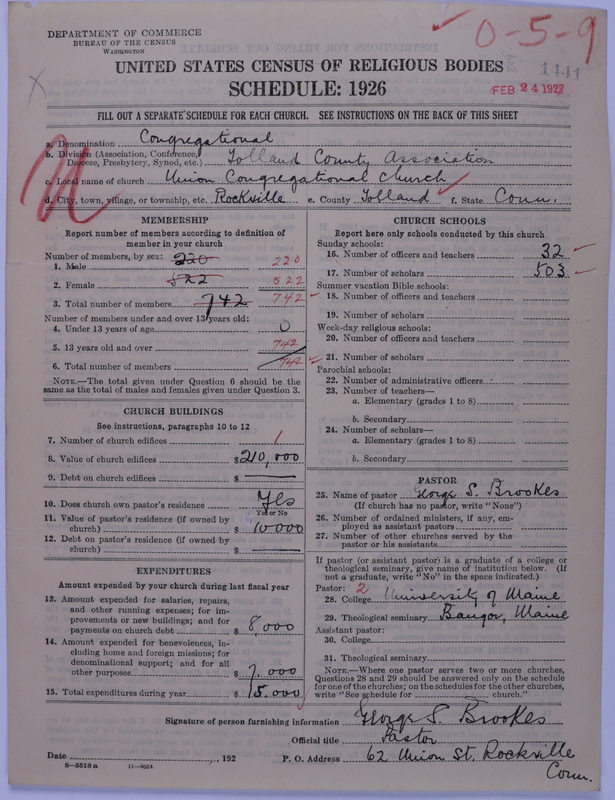 DEPARTMENT OF COMMERCE
BUREAU OF THE CENSUS
WASHINGTON
0-5-9
1441
UNITED STATES CENSUS OF RELIGIOUS BODIES
SCHEDULE: 1926
FEB 24 1927
FILL OUT A SEPARATE SCHEDULE FOR EACH CHURCH. SEE INSTRUCTIONS ON THE BACK OF THIS SHEET
a. Denomination Congregational
b. Division (Association, Conference, Diocese, Presbytery, Synod, etc.) Tolland County Association
c. Local name of church Union Congregational Church
d. City, town, village, or township, etc. Rockville e. County Tolland f. State Conn.
MEMBERSHIP
Report number of members according to definition of
member in your church
Number of members, by sex:
1. Male 220 220
2. Female 522 522
3. Total number of members 742 742
Number of members under and over 13 years old:
4. Under 13 years of age 0
5. 13 years old and over 742
6. Total number of members 742
NOTE.—The total given under Question 6 should be the
same as the total of males and females given under Question 3.
CHURCH BUILDINGS
See instructions, paragraphs 10 to 12
7. Number of church edifices 1
8. Value of church edifices $210,000
9. Debt on church edifices $ —
10. Does church own pastor's residence Yes
Yes or No
11. Value of pastor's residence (if owned by
church) $ 10000
12. Debt on pastor's residence (if owned by
church) $ —
EXPENDITURES
Amount expended by your church during last fiscal year
13. Amount expended for salaries, repairs,
and other running expenses; for im-
provements or new buildings; and for
payments on church debt $ 8,000
14. Amount expended for benevolences, in-
cluding home and foreign missions; for
denominational support; and for all
other purposes $ 7.000
15. Total expenditures during year $ 15.000
CHURCH SCHOOLS
Report here only schools conducted by this church
Sunday schools:
16. Number of officers and teachers 32
17. Number of scholars 503
Summer vacation Bible schools:
18. Number of officers and teachers
19. Number of scholars
Week-day religious schools:
20. Number of officers and teachers
21. Number of scholars
Parochial schools:
22. Number of administrative officers
23. Number of teachers—
a. Elementary (grades 1 to 8)
b. Secondary
24. Number of scholars—
a. Elementary (grades 1 to 8)
b. Secondary
PASTOR
25. Name of pastor George S. Brookes
(If church has no pastor, write "None")
26. Number of ordained ministers, if any, em-
ployed as assistant pastors
27. Number of other churches served by the
pastor or his assistants
If pastor (or assistant pastor) is a graduate of a college or
theological seminary, give name of institution below. (If
not a graduate, write "No" in the space indicated.)
Pastor: 2
28. College University of Maine
29. Theological seminary Bangor, Maine
Assistant pastor:
30. College
31. Theological seminary
NOTE.—Where one pastor serves two or more churches,
Questions 28 and 29 should be answered only on the schedule
for one of the churches; on the schedules for the other churches,
write "See schedule for church."
Signature of person furnishing information George S. Brookes
Official title Pastor
Date , 192 P. O. Address 62 Union St. Rockville
Conn.
8—5518 a 11—9054